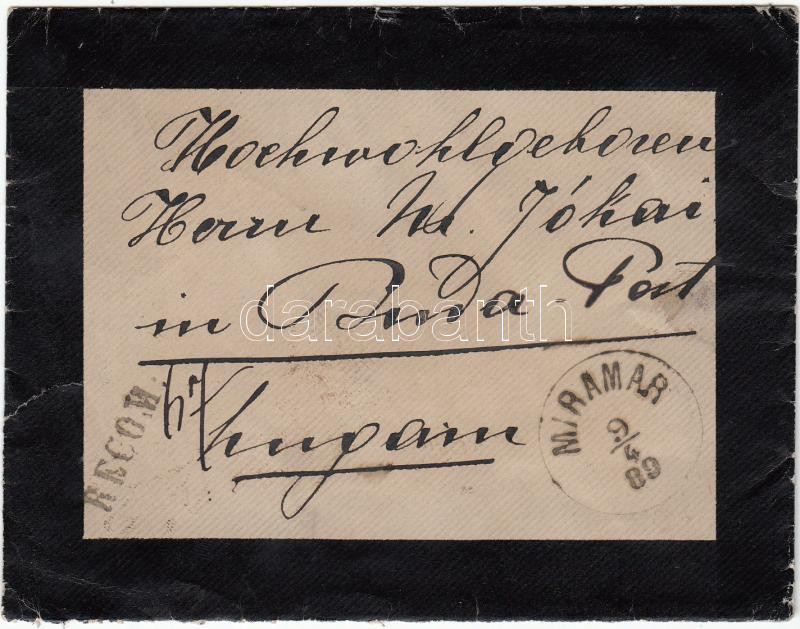 Hochwohlgeboren
Herrn M. Jókai
in Buda-Pest
darabanth
Ungarn
RECOM.
MIRAMAR
9/4
89